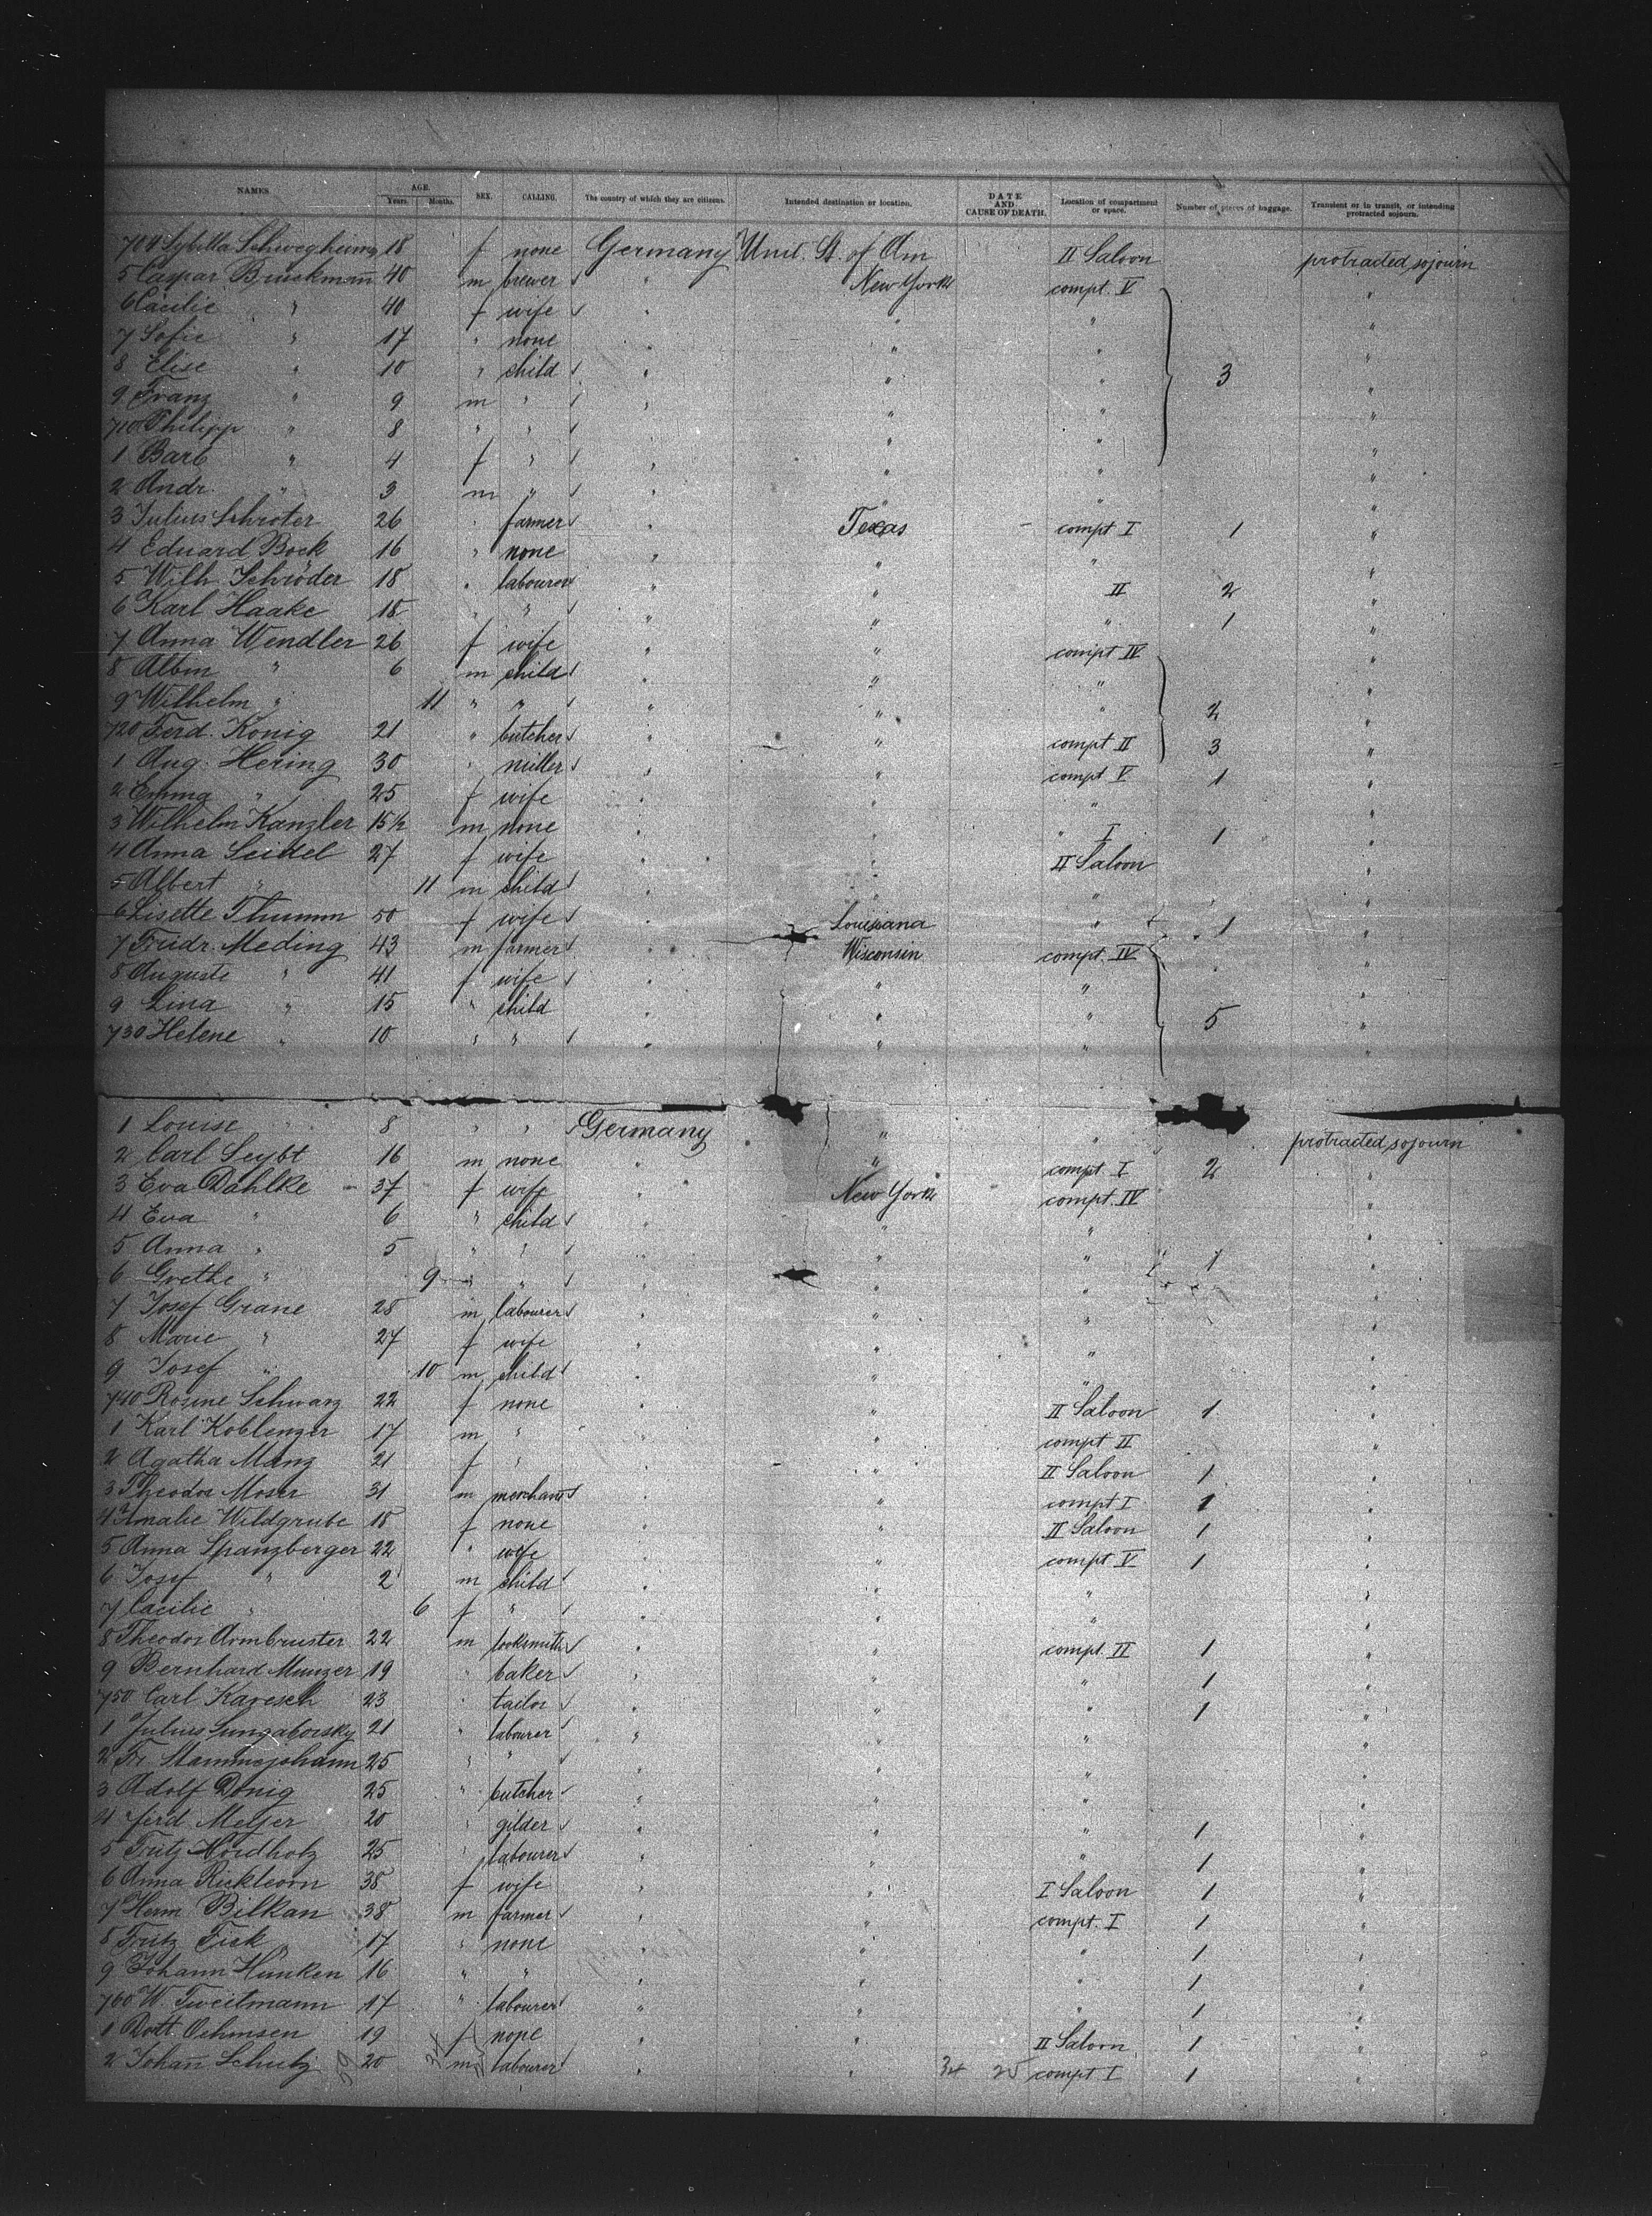 NAMES. AGE. Years. Months. SEX. CALLING. The country of which they are citizens. Intended destination or location. DATE AND CAUSE OF DEATH. Location of compartment or space. Number of pieces of baggage. Transient or in transit, or intending protracted sojourn.
704 Sybilla 18 f none Germany Unit. St. of Am II Saloon protracted sojourn
5 Caspar Bruckmann 40 m brewer " New York compt. V "
6 Cäcilie " 40 f wife " " " "
7 Sofie " 17 " none " " " "
8 Elise " 10 " child " " " 3 "
9 Franz " 9 m " " " " "
710 Philipp " 8 " " " " "
1 Barb " 4 f " " " " "
2 Andr. " 3 m " " " " "
3 Julius Schroter 26 " farmer " Texas compt I 1 "
4 Eduard Bock 16 " none " " " "
5 Wilh. Schröder 18 " labourer " " II 2 "
6 Karl Haake 18 " " " " " 1 "
7 Anna Wendler 26 f wife " " compt IV "
8 Albin " 6 m child " " " "
9 Wilhelm " 11 " " " " " 2 "
720 Ferd. König 21 " butcher " " compt II 3 "
1 Aug. Hering 30 " miller " " compt V 1 "
2 Emma " 25 f wife " " " "
3 Wilhelm Kanzler 15½ m none " " " I 1 "
4 Anna Seidel 27 f wife " " II Saloon "
5 Albert " 11 m child " " " "
6 Lisette Thumm 50 f wife " Louisiana " 1 "
7 Friedr. Meding 43 m farmer " Wisconsin compt. IV "
8 Auguste " 41 f wife " " " "
9 Lina " 15 " child " " " 5 "
730 Helene " 10 " " " " " "
1 Louise " 8 " " Germany " " protracted sojourn
2 Carl Seybt 16 m none " " compt. I 2 "
3 Eva Dahlke 37 f wife " New York compt. IV "
4 Eva " 6 " child " " " "
5 Anna " 5 " " " " " 1 "
6 Grethe " 9 " " " " " "
7 Josef Grane 28 m labourer " " " "
8 Marie " 27 f wife " " " "
9 Josef " 10 m child " " " "
740 Rosine Schwarz 22 f none " " II Saloon 1 "
1 Karl Koblenzer 17 m " " " compt II "
2 Agatha Manz 21 f " " " II Saloon 1 "
3 Theodor Moser 31 m merchant " " compt I 1 "
4 Amalie Wildgrube 18 f none " " II Saloon 1 "
5 Anna Spanzberger 22 " wife " " compt V 1 "
6 Josef " 2 m child " " " "
7 Cäcilie " 6 f " " " " "
8 Theodor Armbruster 22 m locksmith " " compt. II 1 "
9 Bernhard Munzer 19 " baker " " " 1 "
750 Carl Karesch 23 " tailor " " " 1 "
1 Julius 21 " labourer " " " "
2 Fr. 25 " " " " " "
3 Adolf Donig 25 " butcher " " " "
4 Ferd Meyer 20 " gilder " " " 1 "
5 Fritz Nordholz 25 " labourer " " " 1 "
6 Anna 38 f wife " " I Saloon 1 "
7 Herm Bilkan 38 m farmer " " compt. I 1 "
8 Fritz Fick 17 " none " " " 1 "
9 Johann Hünken 16 " " " " " 1 "
760 W. Tweitmann 17 " labourer " " " 1 "
1 Dott. Oehmsen 19 f none " " II Saloon 1 "
2 Johann Schulz 20 m labourer " " compt I 1 "